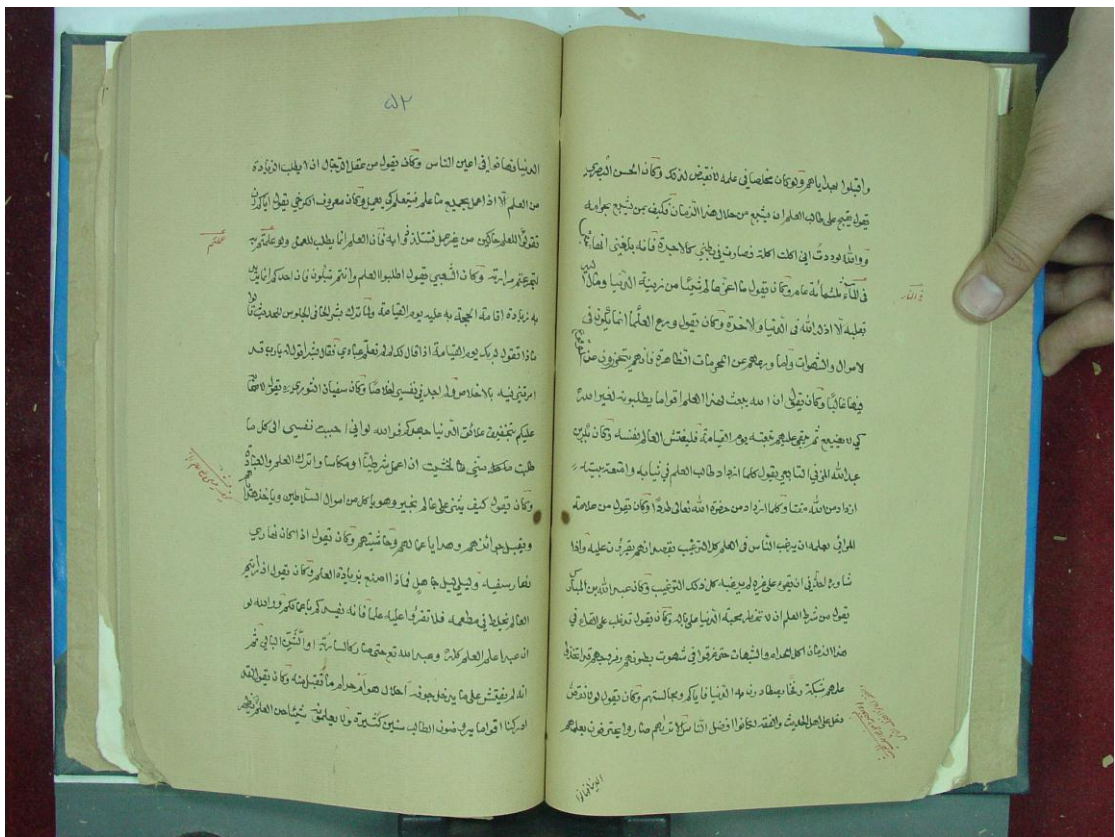 واقبلوا بعدايامهم ولوكان مخلصا فى علمه لانقبض لذلك وكان الحسن البصرى
يقول يقبح على طالب العلم ان يشبع من حلال هذا الزمان فكيف بمن يشبع بحرامه
ووالله لوددت انى اكلت اكلة فصارت فى بطنى كالاجرة فانه بلغنى انها
فى الماء ثلثمائة عام وكان يقول ما اعز عالم شيئا من زينة الدنيا ومال
بعلمه الا اذله الله فى الدنيا والاخرة وكان يقول ورع العلما انما يكون فى
الاموال والشهوات واما ورعهم عن المحرمات الظاهرة فانهم يتحرزون عن
فيها غالبا وكان يقول ان الله يبعث لهذا العلم اقواما يطلبونه لغير الله
كى لا يضيع ثم يبقى عليهم تبعته يوم القيامة فليفتش العالم نفسه وكان بكر بن
عبدالله المزنى التابعى يقول كلما ازداد طالب العلم فى ثيابه وامتعة بيته
ازداد من الله مقتا وكلما ازداد من حضرة الله تعالى طردا وكان يقول من علامة
المرائى بعلمه ان يرغب الناس فى العلم كل الترغيب بقصد انهم يقرؤن عليه واذا
شاوره احد فى ان يقرء على غيره لم يرغبه كل ذلك الترغيب وكان عبدالله بن المبارك
يقول من شرط العلم ان لا تخطر محبة الدنيا على باله وكان يقول قد غلب على القراء فى
هذا الزمان اكل الحرام والشبهات حتى غرقوا فى شهوت بطونهم وفروجهم قد اتخذوا
علمهم شبكة يصطادون به الدنيا فاياكم ومجالستهم وكان يقول لولا نقص
دخل على اهل الحديث والفقه لكانوا افضل الناس الا تراهم صاروا يحترفون بعلمهم
الدنيا فهانوا
فى النار
٥٢
الدنيا فهانوا فى اعين الناس وكان يقول من عقل الرجال ان لا يطلب الزيادة
من العلم الا اذا عمل بجميع ما علم فيتعلم كى يعمل وكان معروف الكرخى يقول
من غير عمل فان العلم انما يطلب للعمل ولو علمتم به
لتجرعتم مرارته وكان الشعبى يقول اطلبوا العلم وانتم تبكون فان احدكم انما يريد
به زيادة اقامة الحجة عليه يوم القيامة ولما ترك بشر الحافى الجلوس للحديث قالوا
ماذا تقول لربك يوم القيامة اذا قال لك لم لم تعلم عبادى فقال بشر اقول له يارب قد
امرتنى فيه بالاخلاص ولم اجد فى نفسى اخلاصا وكان سفيان الثورى يقول
عليكم بتخفيف علائق الدنيا فوالله لو انى اجبت نفسى الى كل ما
طلبت لخشيت ان اعمل شرطيا او مكاسا واترك العلم والعبادة
وكان يقول كيف يثنى على عالم بخير وهو ياكل من اموال السلاطين وياخذ
ويقبل جوائزهم وهدايا عمالهم وحاشيتهم وكان يقول اذا كان نهارى
نهار سفيه وليلى ليل جاهل فماذا اصنع بزيادة العلم وكان يقول اذا رايتم
العالم يخلط فى مطعمه فلا تقرؤا عليه علما فانه يفسدكم ووالله لو
ان عبدا علم العلم كله وعبد الله تع حتى صار كالسارية او الشن البالى ثم
انه لم يفتش على ما يدخل جوفه احلال هو ام حرام ما تقبل منه وكان يقول لقد
ادركنا اقواما يروضون الطالب سنين كثيرة ولا يعلمونه شيئا من العلم